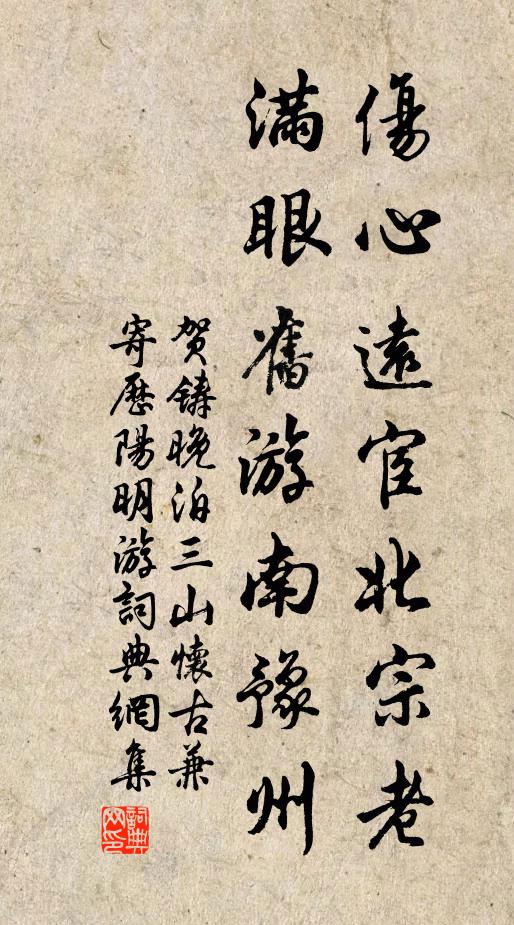 傷心遠宦北宗老
滿眼舊游南豫州
贺鑄晚泊三山懷古兼
寄歷陽明游詞典網集
詞典
网印